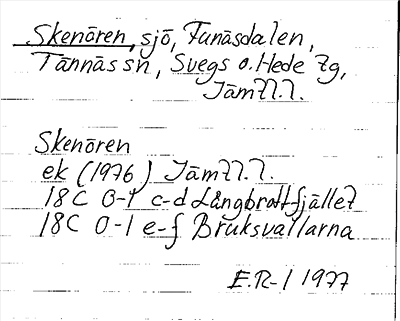 Skenören, sjö, Funäsdalen,
Tännäs sn, Svegs o. Hede tg,
Jämtl. l.
Skenören
ek (1976) Jämtl. l.
18C 0-1 c-d Långbrottfjället
18C 0-1 e-f Bruksvallarna
E.R-l 1977